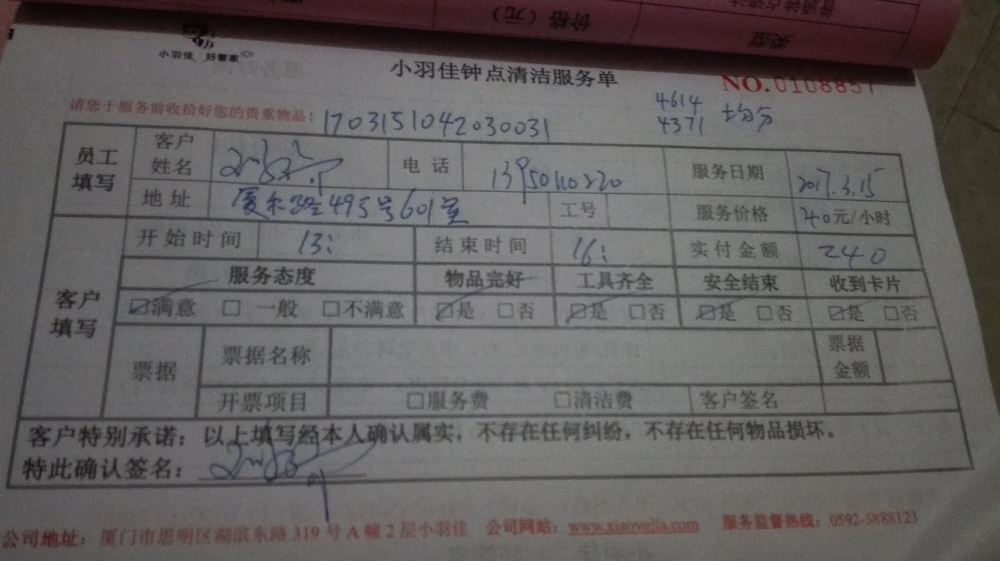 类型
普通钟点清洁
价格（元）
小羽佳 好管家
小羽佳钟点清洁服务单
NO.0108857
请您于服务前收拾好您的贵重物品！
1703151042030031
4614
4371 均分
员工填写
客户姓名
电话
13950110220
服务日期
2017.3.15
地址
495号601室
工号
服务价格
40元/小时
客户填写
开始时间
13:
结束时间
16:
实付金额
240
服务态度 物品完好 工具齐全 安全结束 收到卡片
☑满意 □一般 □不满意 ☑是 □否 ☑是 □否 ☑是 □否 ☑是 □否
票据
票据名称
票据金额
开票项目 □服务费 □清洁费 客户签名
客户特别承诺：以上填写经本人确认属实，不存在任何纠纷，不存在任何物品损坏。
特此确认签名：
公司地址：厦门市思明区湖滨东路319号A幢2层小羽佳 公司网站：www.xiaoyujia.com 服务监督热线：0592-5888123